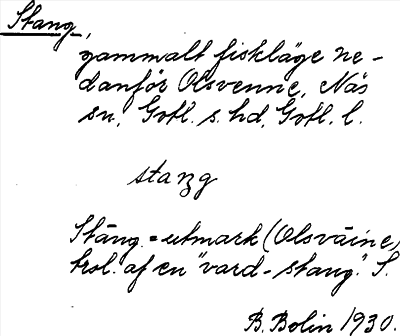 Stang,
gammalt fiskläge ne-
danför Olsvenne, Näs
sn, Gotl. s. hd, Gotl. l.
staŋg
Stāng = utmark (Olsväine,
trol. af en "vard-stang". S.
B. Bolin 1930.